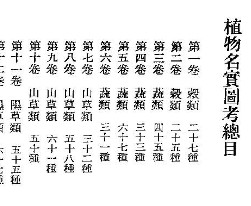 植物名實圖考總目
第一卷 穀類 二十七種
第二卷 穀類 二十五種
第三卷 蔬類 四十五種
第四卷 蔬類 三十五種
第五卷 蔬類 六十三種
第六卷 蔬類 三十一種
第七卷 山草類 三十二種
第八卷 山草類 五十八種
第九卷 山草類 六十八種
第十卷 山草類 五十種
第十一卷 隰草類 五十五種